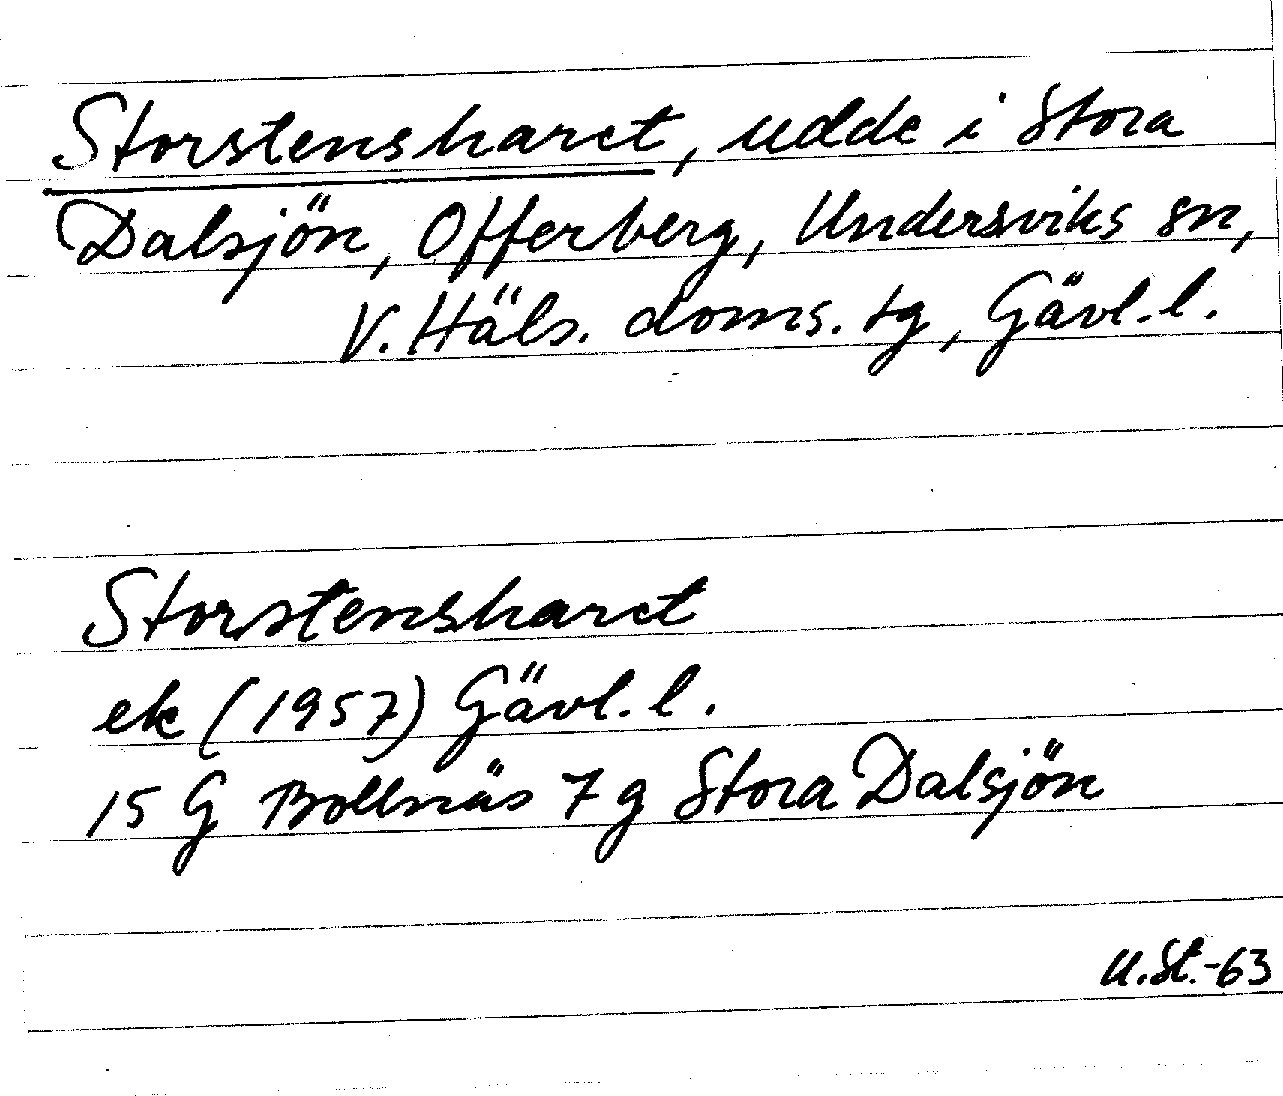 Storstensharet, udde i Stora
Dalsjön, Offerberg, Undersviks sn,
V. Häls. doms. tg, Gävl. l.
Storstensharet
ek (1957) Gävl. l.
15 G Bollnäs 7 g Stora Dalsjön
U. St. -63